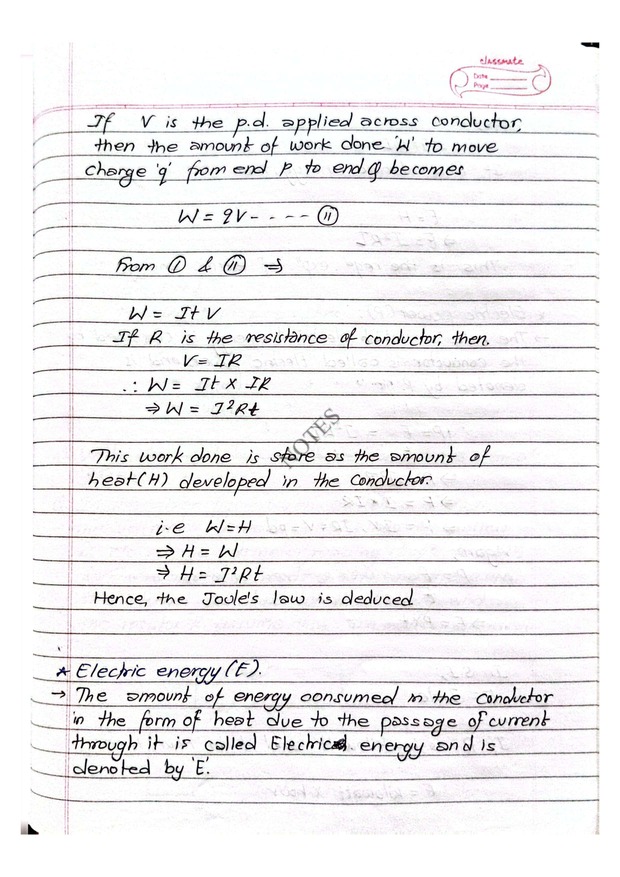 classmate
Date
Page
If V is the p.d. applied across conductor,
then the amount of work done 'W' to move
charge 'q' from end P to end Q becomes
W = qV - - - - (II)
From (I) & (II) ⇒
W = ItV
If R is the resistance of conductor, then.
V = IR
∴ W = It × IR
⇒ W = I²Rt
NOTES
This work done is store as the amount of
heat(H) developed in the conductor.
i.e W=H
⇒ H = W
⇒ H = I²Rt
Hence, the Joule's law is deduced
* Electric energy (E).
→ The amount of energy consumed in the conductor
in the form of heat due to the passage of current
through it is called Electric energy and is
denoted by 'E'.